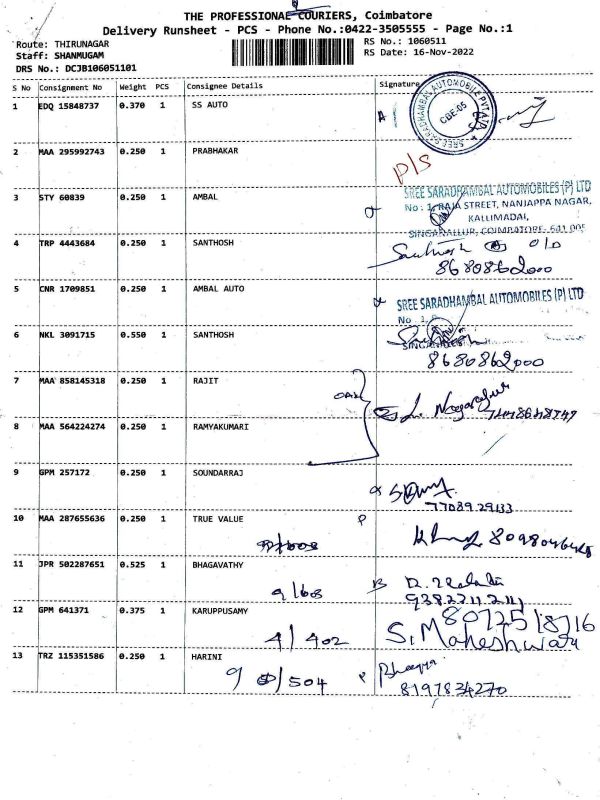 THE PROFESSIONAL COURIERS, Coimbatore
Delivery Runsheet - PCS - Phone No.:0422-3505555 - Page No.:1
Route: THIRUNAGAR
Staff: SHANMUGAM
DRS No.: DCJB106051101
RS No.: 1060511
RS Date: 16-Nov-2022
S No Consignment No Weight PCS Consignee Details Signature
1 EDQ 15848737 0.370 1 SS AUTO
SREE SARADHAMBAL AUTOMOBILES PVT LTD
CBE-05
2 MAA 295992743 0.250 1 PRABHAKAR
P/S
3 STY 60839 0.250 1 AMBAL
SREE SARADHAMBAL AUTOMOBILES (P) LTD
No : 1, RAJA STREET, NANJAPPA NAGAR,
KALLIMADAI,
SINGANALLUR, COIMBATORE- 641 005
4 TRP 4443684 0.250 1 SANTHOSH
Santhosh
8680862000
5 CNR 1709851 0.250 1 AMBAL AUTO
SREE SARADHAMBAL AUTOMOBILES (P) LTD
No : 1,
6 NKL 3091715 0.550 1 SANTHOSH
8680862000
7 MAA 858145318 0.250 1 RAJIT
8 MAA 564224274 0.250 1 RAMYAKUMARI
9 GPM 257172 0.250 1 SOUNDARRAJ
7708929133
10 MAA 287655636 0.250 1 TRUE VALUE P
11 JPR 502287651 0.525 1 BHAGAVATHY
9/68
12 GPM 641371 0.375 1 KARUPPUSAMY
4/402
8072518716
S. Maheshwari
13 TRZ 115351586 0.250 1 HARINI
/504
Bhagya
8197834270